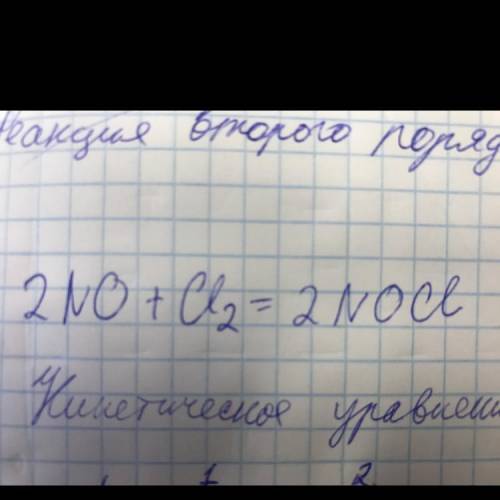 Реакция второго поряд
2NO + Cl₂ = 2NOCl
Кинетическое уравнени
1 2